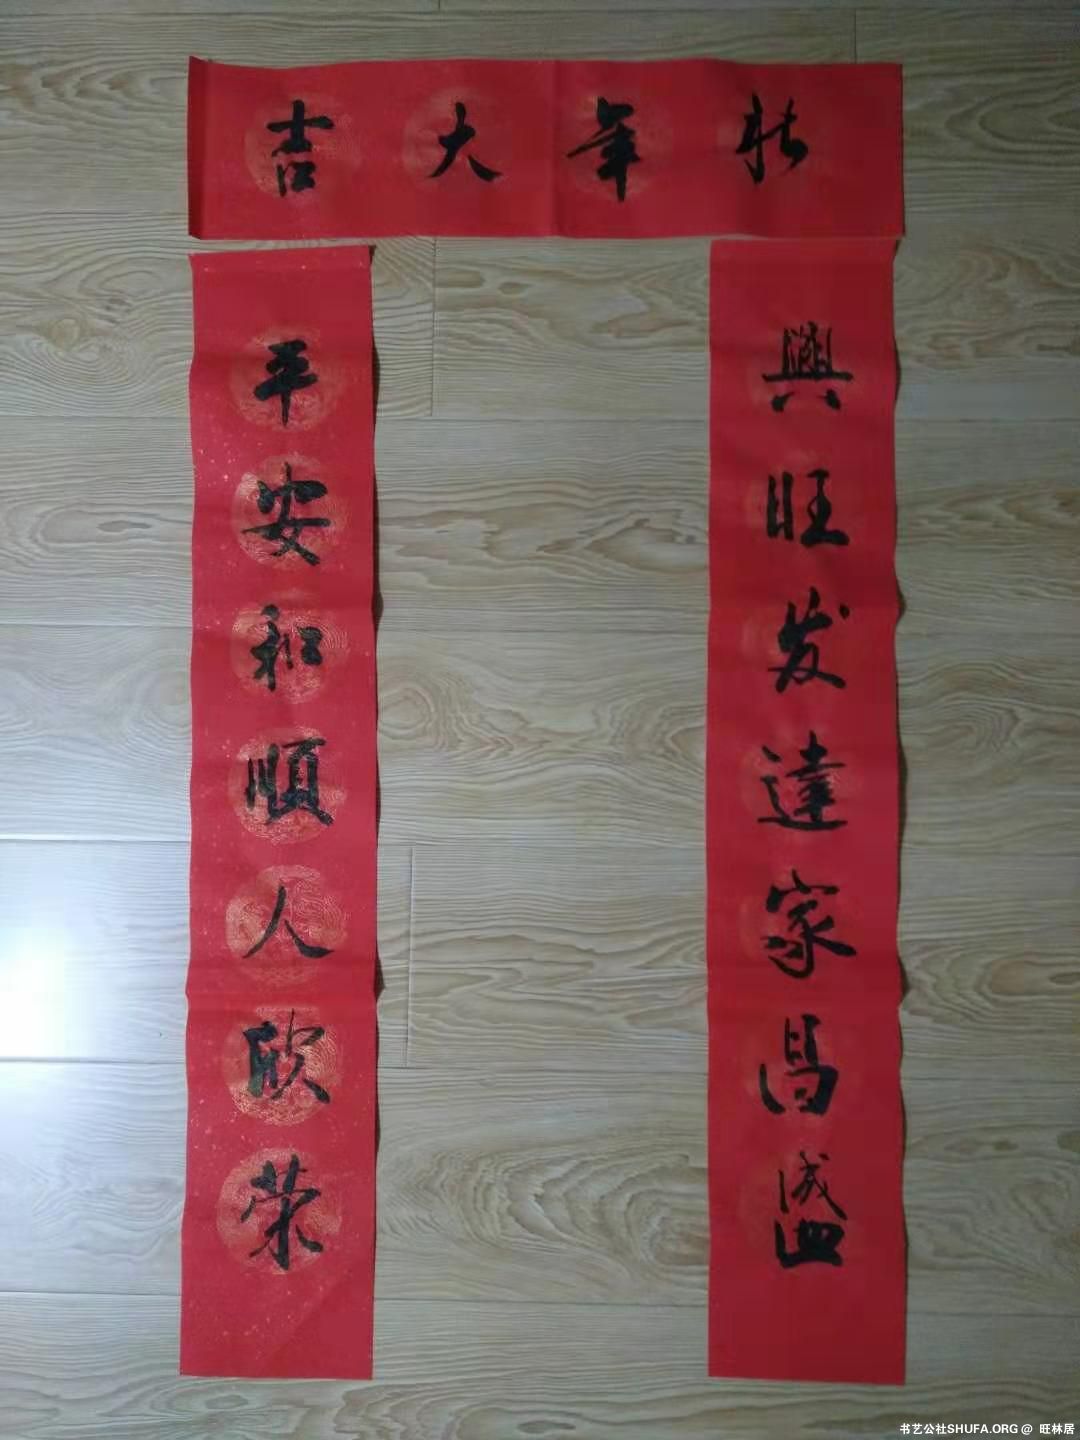 新年大吉
興旺发達家昌盛
平安和順人欣荣
书艺公社SHUFA.ORG @ 旺林居